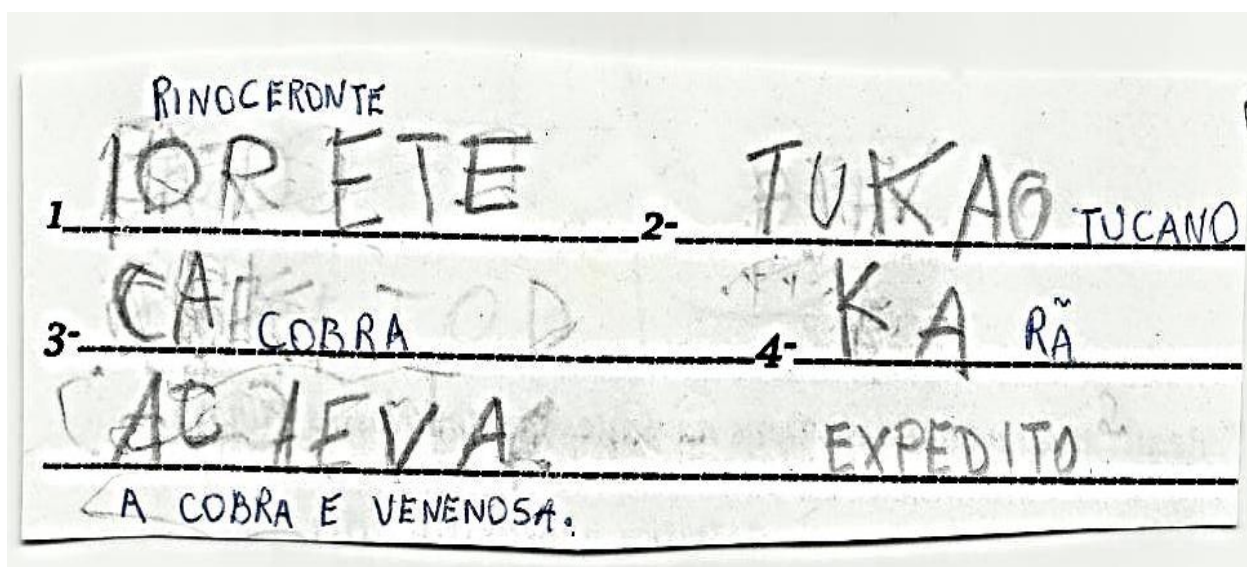 RINOCERONTE
1 IORETE 2- TUKAO TUCANO
3- CA COBRA 4- KA RÃ
AC IEVA EXPEDITO
A COBRA E VENENOSA.